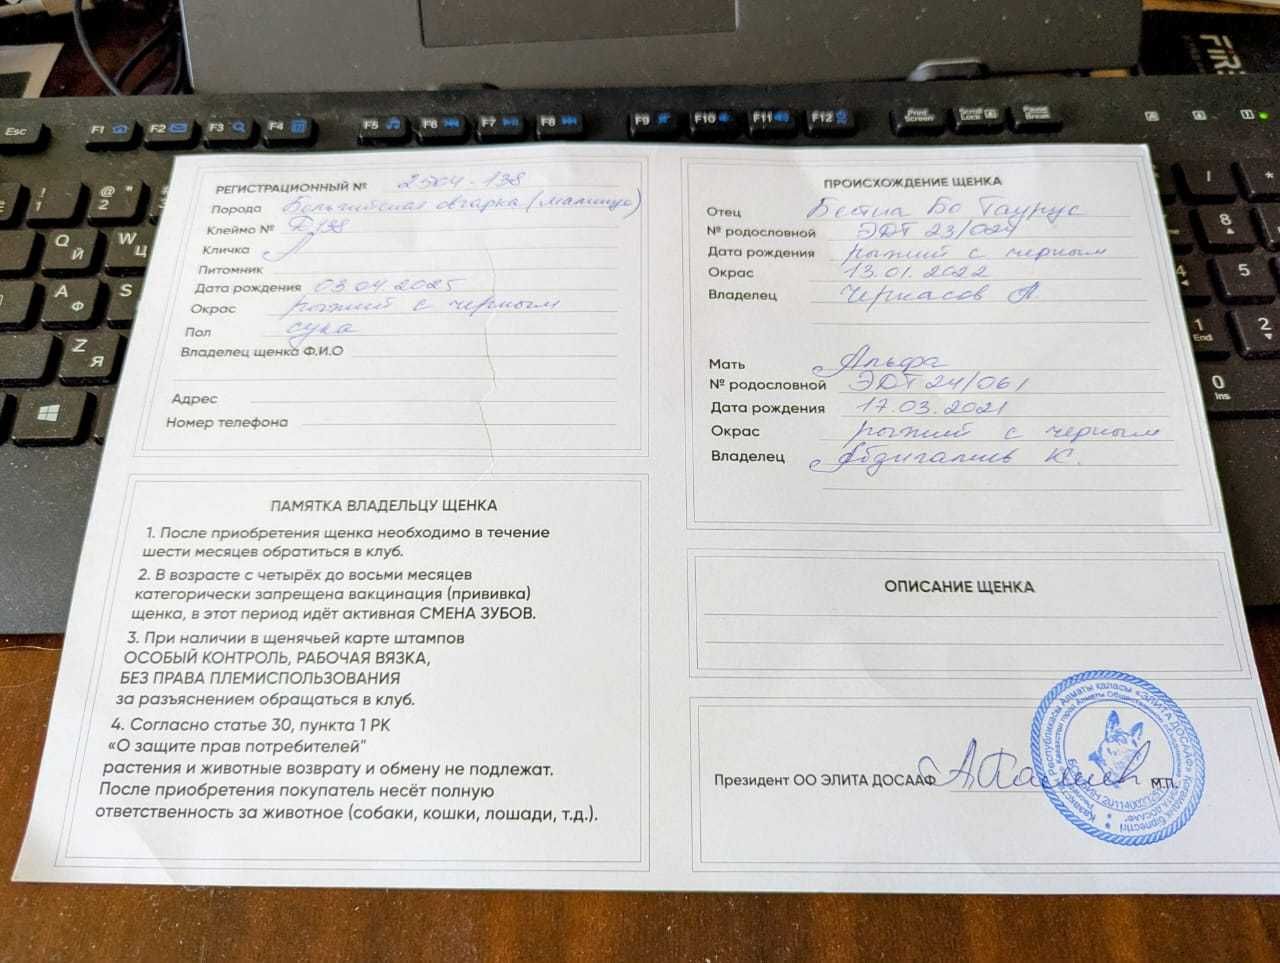 РЕГИСТРАЦИОННЫЙ № 2504-138
Порода Бельгийская овчарка (малинуа)
Клеймо № 138
Кличка Л
Питомник
Дата рождения 03.04.2025
Окрас рыжий с черным
Пол сука
Владелец щенка Ф.И.О
Адрес
Номер телефона
ПАМЯТКА ВЛАДЕЛЬЦУ ЩЕНКА
1. После приобретения щенка необходимо в течение
шести месяцев обратиться в клуб.
2. В возрасте с четырёх до восьми месяцев
категорически запрещена вакцинация (прививка)
щенка, в этот период идёт активная СМЕНА ЗУБОВ.
3. При наличии в щенячьей карте штампов
ОСОБЫЙ КОНТРОЛЬ, РАБОЧАЯ ВЯЗКА,
БЕЗ ПРАВА ПЛЕМИСПОЛЬЗОВАНИЯ
за разъяснением обращаться в клуб.
4. Согласно статье 30, пункта 1 РК
«О защите прав потребителей"
растения и животные возврату и обмену не подлежат.
После приобретения покупатель несёт полную
ответственность за животное (собаки, кошки, лошади, т.д.).
ПРОИСХОЖДЕНИЕ ЩЕНКА
Отец Бестиа Бо Таурус
№ родословной ЭДТ 23/024
Дата рождения рыжий с черным
Окрас 13.01.2022
Владелец Черкасов А
Мать Альфа
№ родословной ЭДТ 24/061
Дата рождения 17.03.2021
Окрас рыжий с черным
Владелец Абдигалиев К.
ОПИСАНИЕ ЩЕНКА
Президент ОО ЭЛИТА ДОСААФ М.П.
Esc F1 F2 F3 F4 F5 F6 F7 F8 F9 F10 F11 F12 Print Screen Scroll Lock Pause Break
FIRE